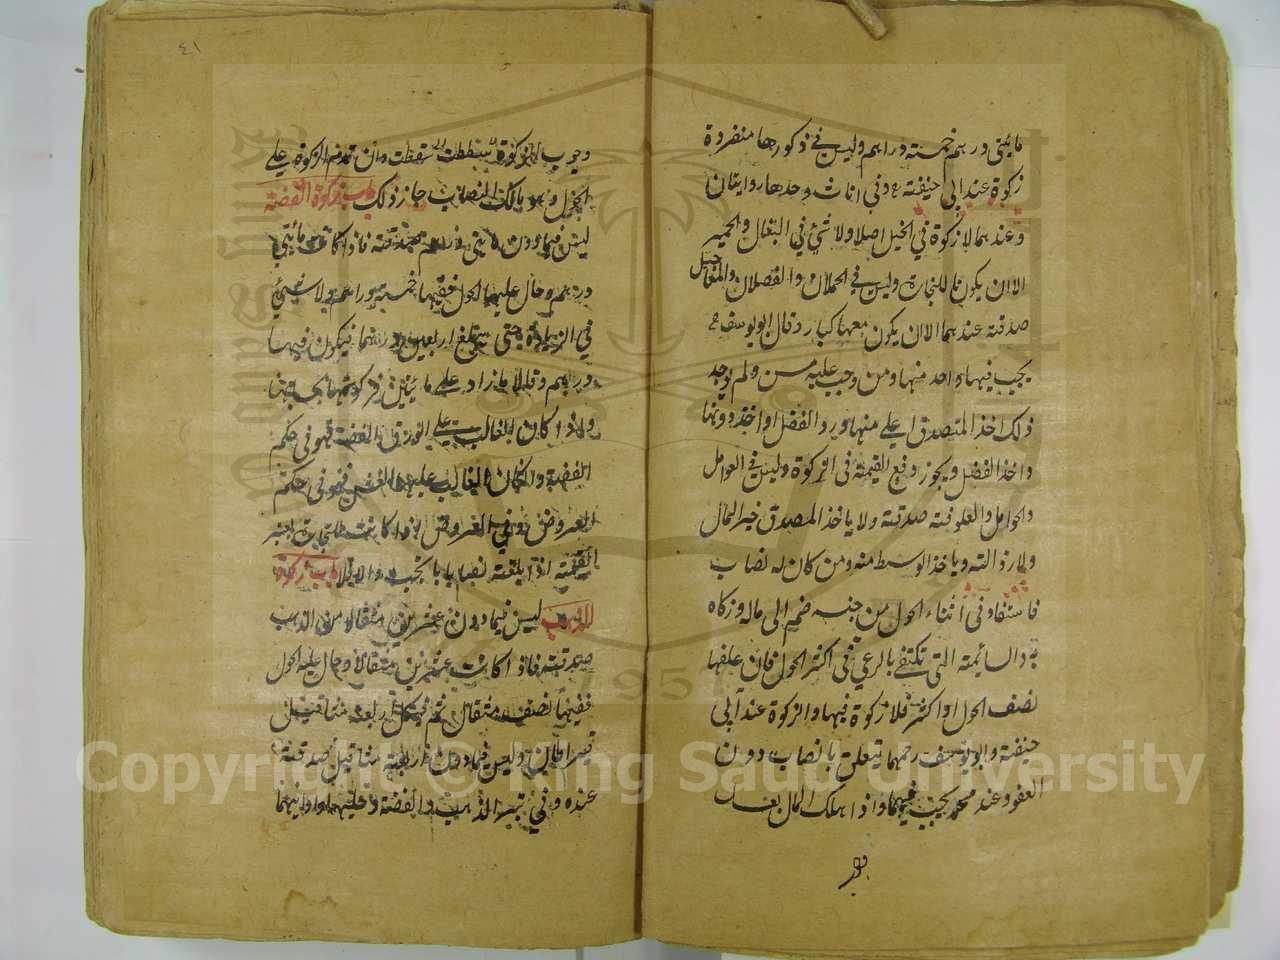 مايتى درهم خمسة دراهم وليس في ذكورها منفردة
زكوة عند ابى حنيفة وفى اناث وحدها روايتان
وعندهما لا زكوة في الخيل اصلا ولا شئ في البغال والحمير
الا ان يكون للتجارة وليس في الحملان والفصلان والعجاجيل
صدقة عندهما الا ان يكون معها كبار وقال ابو يوسف
يجب فيها واحد منها ومن وجب عليه مسن ولم يوجد
ذلك اخذ المتصدق اعلى منها ورد الفضل او اخذ دونها
واخذ الفضل ويجوز دفع القيمة فى الزكوة وليس في العوامل
والحوامل والعلوفة صدقة ولا ياخذ المصدق خير المال
ولا رذالته وياخذ الوسط منه ومن كان له نصاب
فاستفاد فى اثناء الحول من جنسه ضم الى ماله وزكاه
والسائمة التى تكتفى بالرعى فى اكثر الحول فان علفها
نصف الحول او اكثر فلا زكوة فيها والزكوة عند ابى
حنيفة وابو يوسف رحمهما تتعلق بالنصاب دون
العفو وعند محمد يجب فيهما واذا هلك المال بعد
٤١
وجوب الزكوة سقطت وان قدم الزكوة على
الحول وهو مالك النصاب جاز ذلك باب زكوة الفضة
ليس فيما دون مايتى درهم صدقة فاذا كانت مائتي
درهم وحال عليها الحول ففيها خمسة دراهم ولا شئ
في الزيادة حتى تبلغ اربعين درهما فيكون فيها
درهم وقالا ما زاد على مايتين فزكوتها بحسابها
واذا كان الغالب على الورق الفضة فهو فى حكم
الفضة وان كان الغالب عليها الغش فهو فى حكم
العروض وفى العروض اذا كانت للتجارة يعتبر
القيمة اذا بلغت نصابا يجب والا فلا باب زكوة
الذهب ليس فيما دون عشرين مثقالا من الذهب
صدقة فاذا كانت عشرين مثقالا وحال عليه الحول
ففيها نصف مثقال ثم فى كل اربعة مثاقيل
قيراطان وليس فيما دون اربعة مثاقيل صدقة
عنده وفي تبر الذهب والفضة وحليهما واوانيهما
Copyright © King Saud University
1957